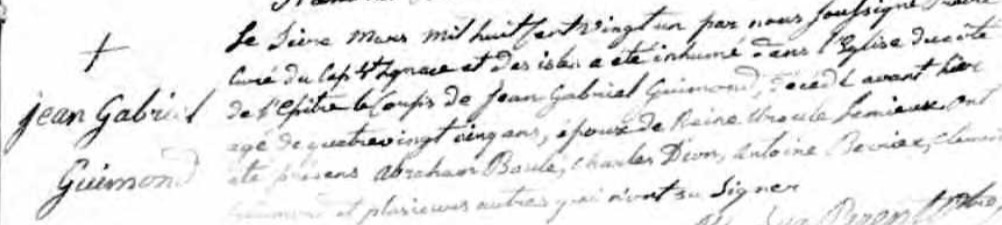 jean Gabriel
Guimond
Le Sieme Mars mil huit Cent vingt un par nous Soussigné
Curé du Cap St Ignace et des isles a été inhumé dans l'Eglise du côté
de l'Epitre le Corps de Jean Gabriel Guimond, décédé avant hier
agé de quatrevingt cinq ans, époux de Reine Ursule Lemieux. ont
été présens Abraham Boulé, Charles Dion, Antoine Bernier,
Guimond et plusieurs autres qui n'ont su Signer